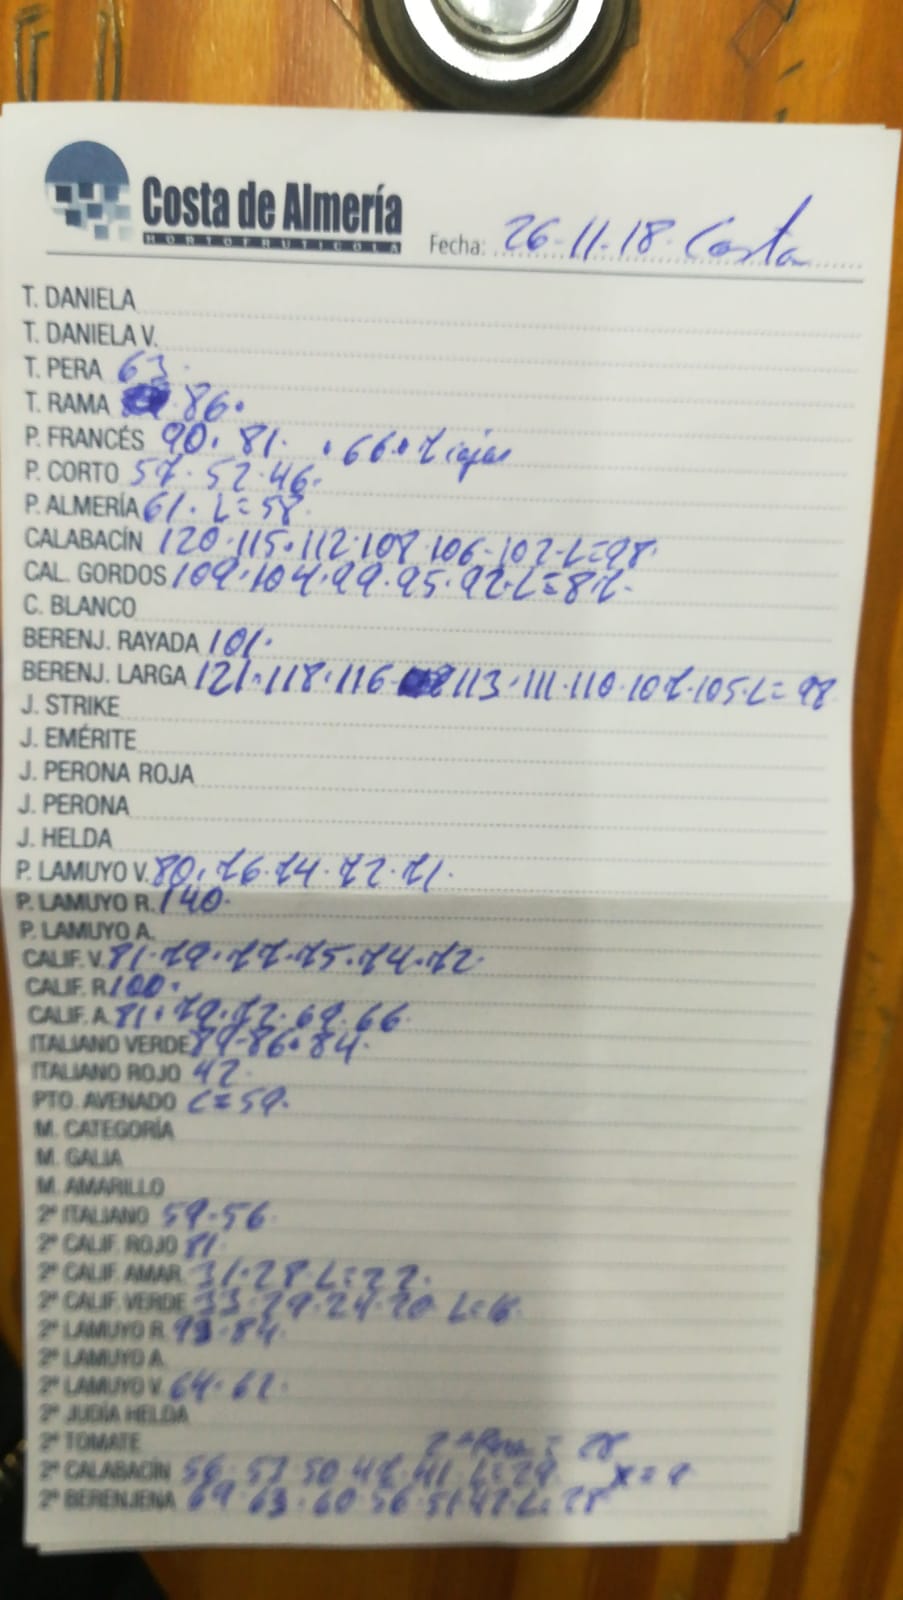 Costa de Almería
HORTOFRUTICOLA
Fecha: 26-11-18- Costa
T. DANIELA
T. DANIELA V.
T. PERA 63.
T. RAMA 86.
P. FRANCÉS 90. 81. . 66. 7 cajas
P. CORTO 57. 52. 46.
P. ALMERÍA 61. L=58.
CALABACÍN 120.115.112.108.106-102-L=98.
CAL. GORDOS 109.104.99.95.92.L=87-
C. BLANCO
BERENJ. RAYADA 101.
BERENJ. LARGA 121.118.116-113.111.110.107.105.L=98
J. STRIKE
J. EMÉRITE
J. PERONA ROJA
J. PERONA
J. HELDA
P. LAMUYO V. 80.76.74.72.71.
P. LAMUYO R. 140.
P. LAMUYO A.
CALIF. V. 81.79.77.75.74.72.
CALIF. R. 100.
CALIF. A. 81.79.72.69.66
ITALIANO VERDE 89-86.84.
ITALIANO ROJO 42.
PTO. AVENADO L=59.
M. CATEGORÍA
M. GALIA
M. AMARILLO
2ª ITALIANO 59.56
2ª CALIF. ROJO 81.
2ª CALIF. AMAR. 31.28.L=22.
2ª CALIF. VERDE 33.29.24.20 L=16
2ª LAMUYO R. 93.84.
2ª LAMUYO A.
2ª LAMUYO V. 64.62.
2ª JUDÍA HELDA
2ª TOMATE = 28
2ª CALABACÍN 56.53.50.47.41.L=29.
2ª BERENJENA 69.63.60.56.51.47.L=28